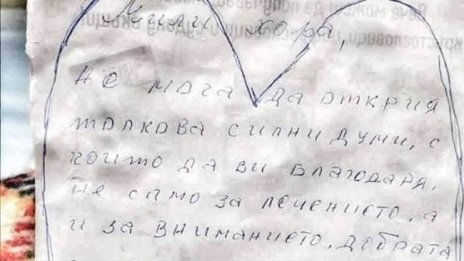 Мили хора,
Не мога да открия
толкова силни думи, с
които да ви благодаря,
не само за лечението, а
и за вниманието, добрата